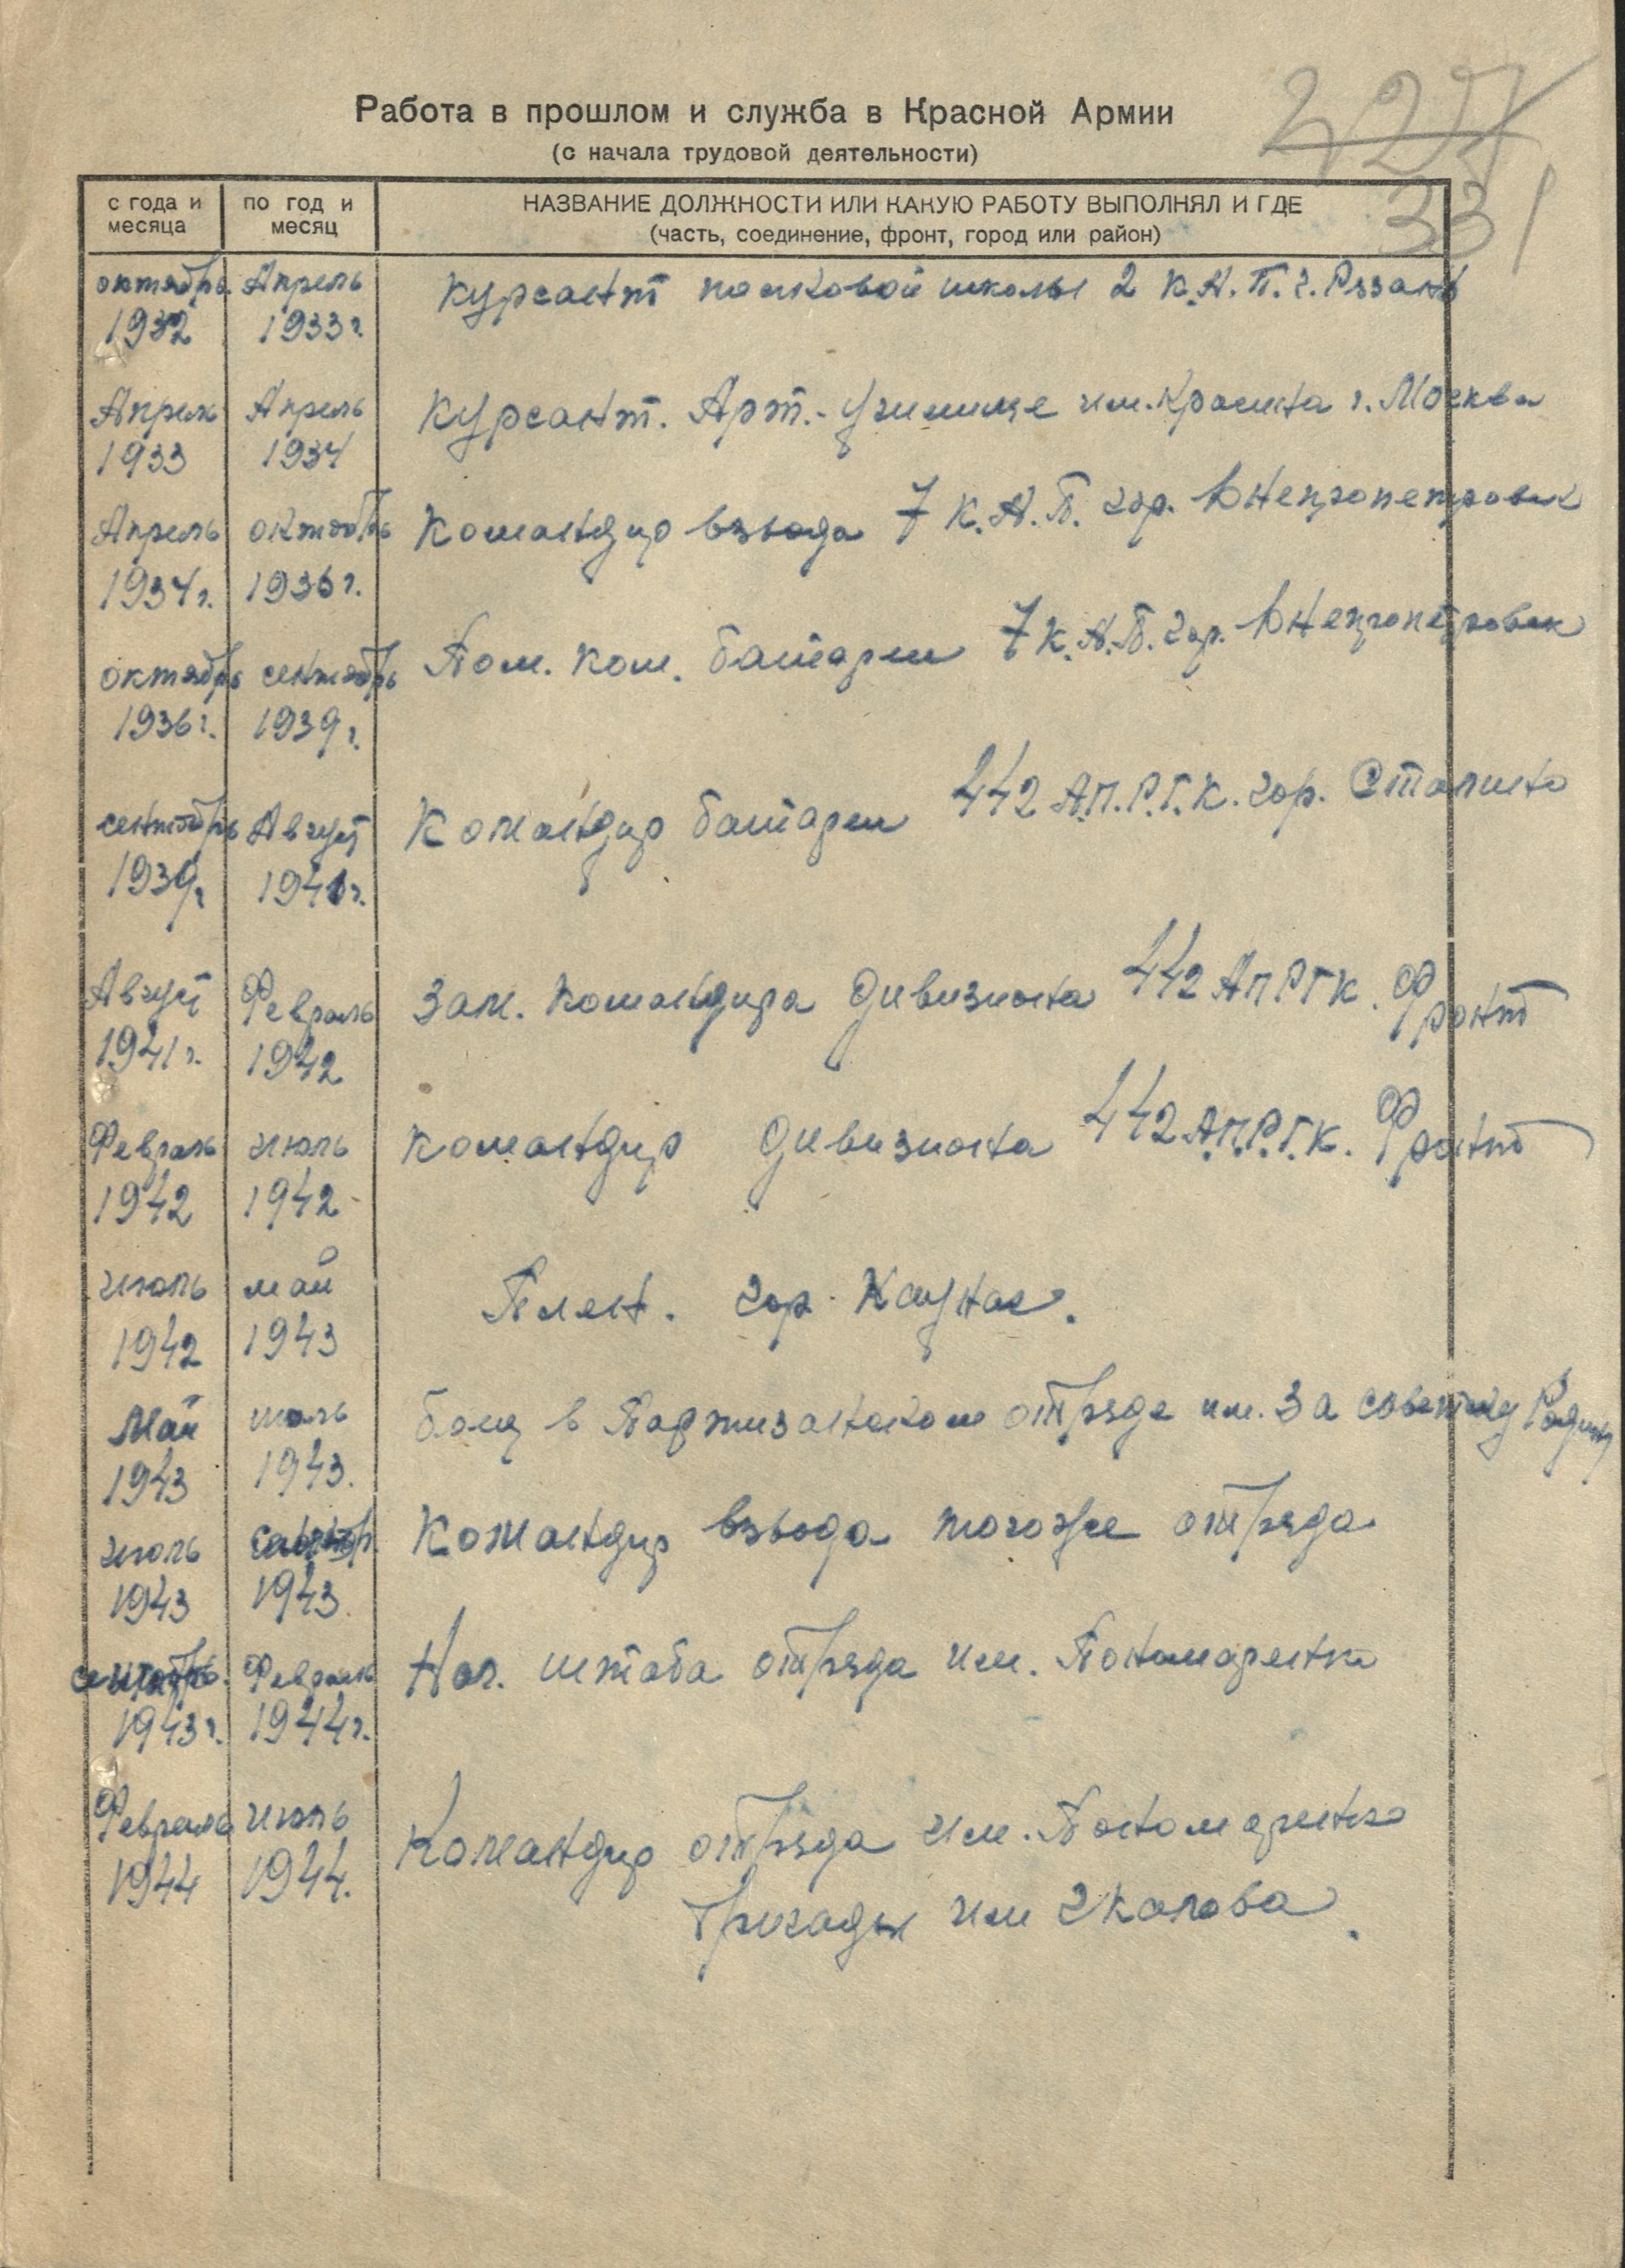 227
331
Работа в прошлом и служба в Красной Армии
(с начала трудовой деятельности)
с года и месяца
по год и месяц
НАЗВАНИЕ ДОЛЖНОСТИ ИЛИ КАКУЮ РАБОТУ ВЫПОЛНЯЛ И ГДЕ
(часть, соединение, фронт, город или район)
октябрь Апрель Курсант полковой школы 2 К.А.П. г. Рязань
1932 1933 г.
Апрель Апрель Курсант. Арт.-училище им. Красина г. Москва
1933 1934
Апрель октябрь Командир взвода 7 К.А.П. гор. Днепропетровск
1934 г. 1936 г.
октябрь сентябрь Пом. ком. батареи 7 К.А.П. гор. Днепропетровск
1936 г. 1939 г.
сентябрь Август Командир батареи 442 А.П.Р.Г.К. гор. Сталино
1939 г. 1941 г.
Август Февраль Зам. командира дивизиона 442 АПРГК. Фронт
1941 г. 1942
Февраль июль Командир дивизиона 442 А.П.Р.Г.К. Фронт
1942 1942
июль май Плен. гор. Каунас.
1942 1943
Май июль боец в Партизанском отряде им. За советскую Родину
1943 1943.
июль сентябр. Командир взвода тогоже отряда
1943 1943.
сентябрь. Февраль Нач. штаба отряда им. Пономаренко
1943 г. 1944 г.
Февраль июль Командир отряда им. Пономаренко
1944 1944. бригады им Чкалова.